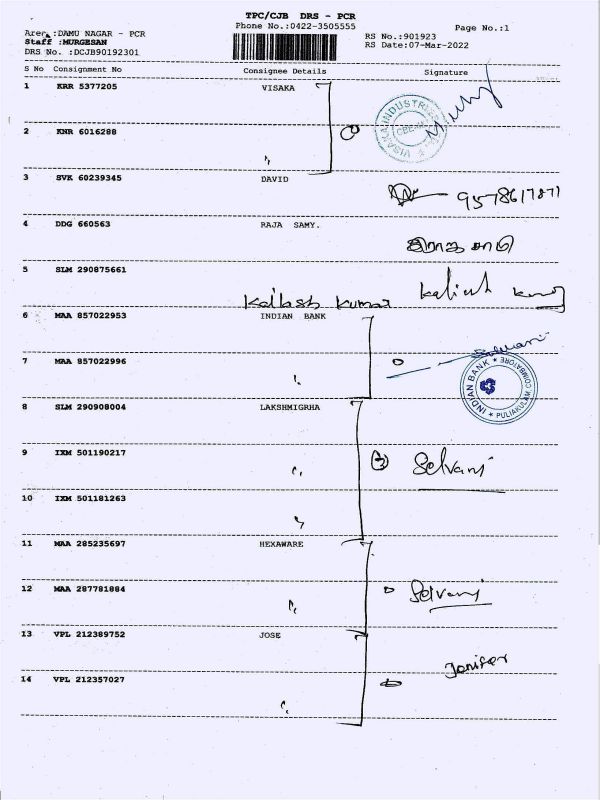 TPC/CJB DRS - PCR
Phone No.:0422-3505555
Page No.:1
Area :DAMU NAGAR - PCR
RS No.:901923
Staff :MURGESAN
RS Date:07-Mar-2022
DRS No. :DCJB90192301
S No Consignment No Consignee Details Signature
1 KRR 5377205 VISAKA
VISAKA INDUSTRIES
2 KNR 6016288
3 SVK 60239345 DAVID
9578617871
4 DDG 660563 RAJA SAMY.
5 SLM 290875661
Kailash Kumar
6 MAA 857022953 INDIAN BANK
7 MAA 857022996
INDIAN BANK * PULIAKULAM, COIMBATORE *
8 SLM 290908004 LAKSHMIGRHA
9 IXM 501190217
Selvani
10 IXM 501181263
11 MAA 285235697 HEXAWARE
12 MAA 287781884
Selvani
13 VPL 212389752 JOSE
Jenifer
14 VPL 212357027